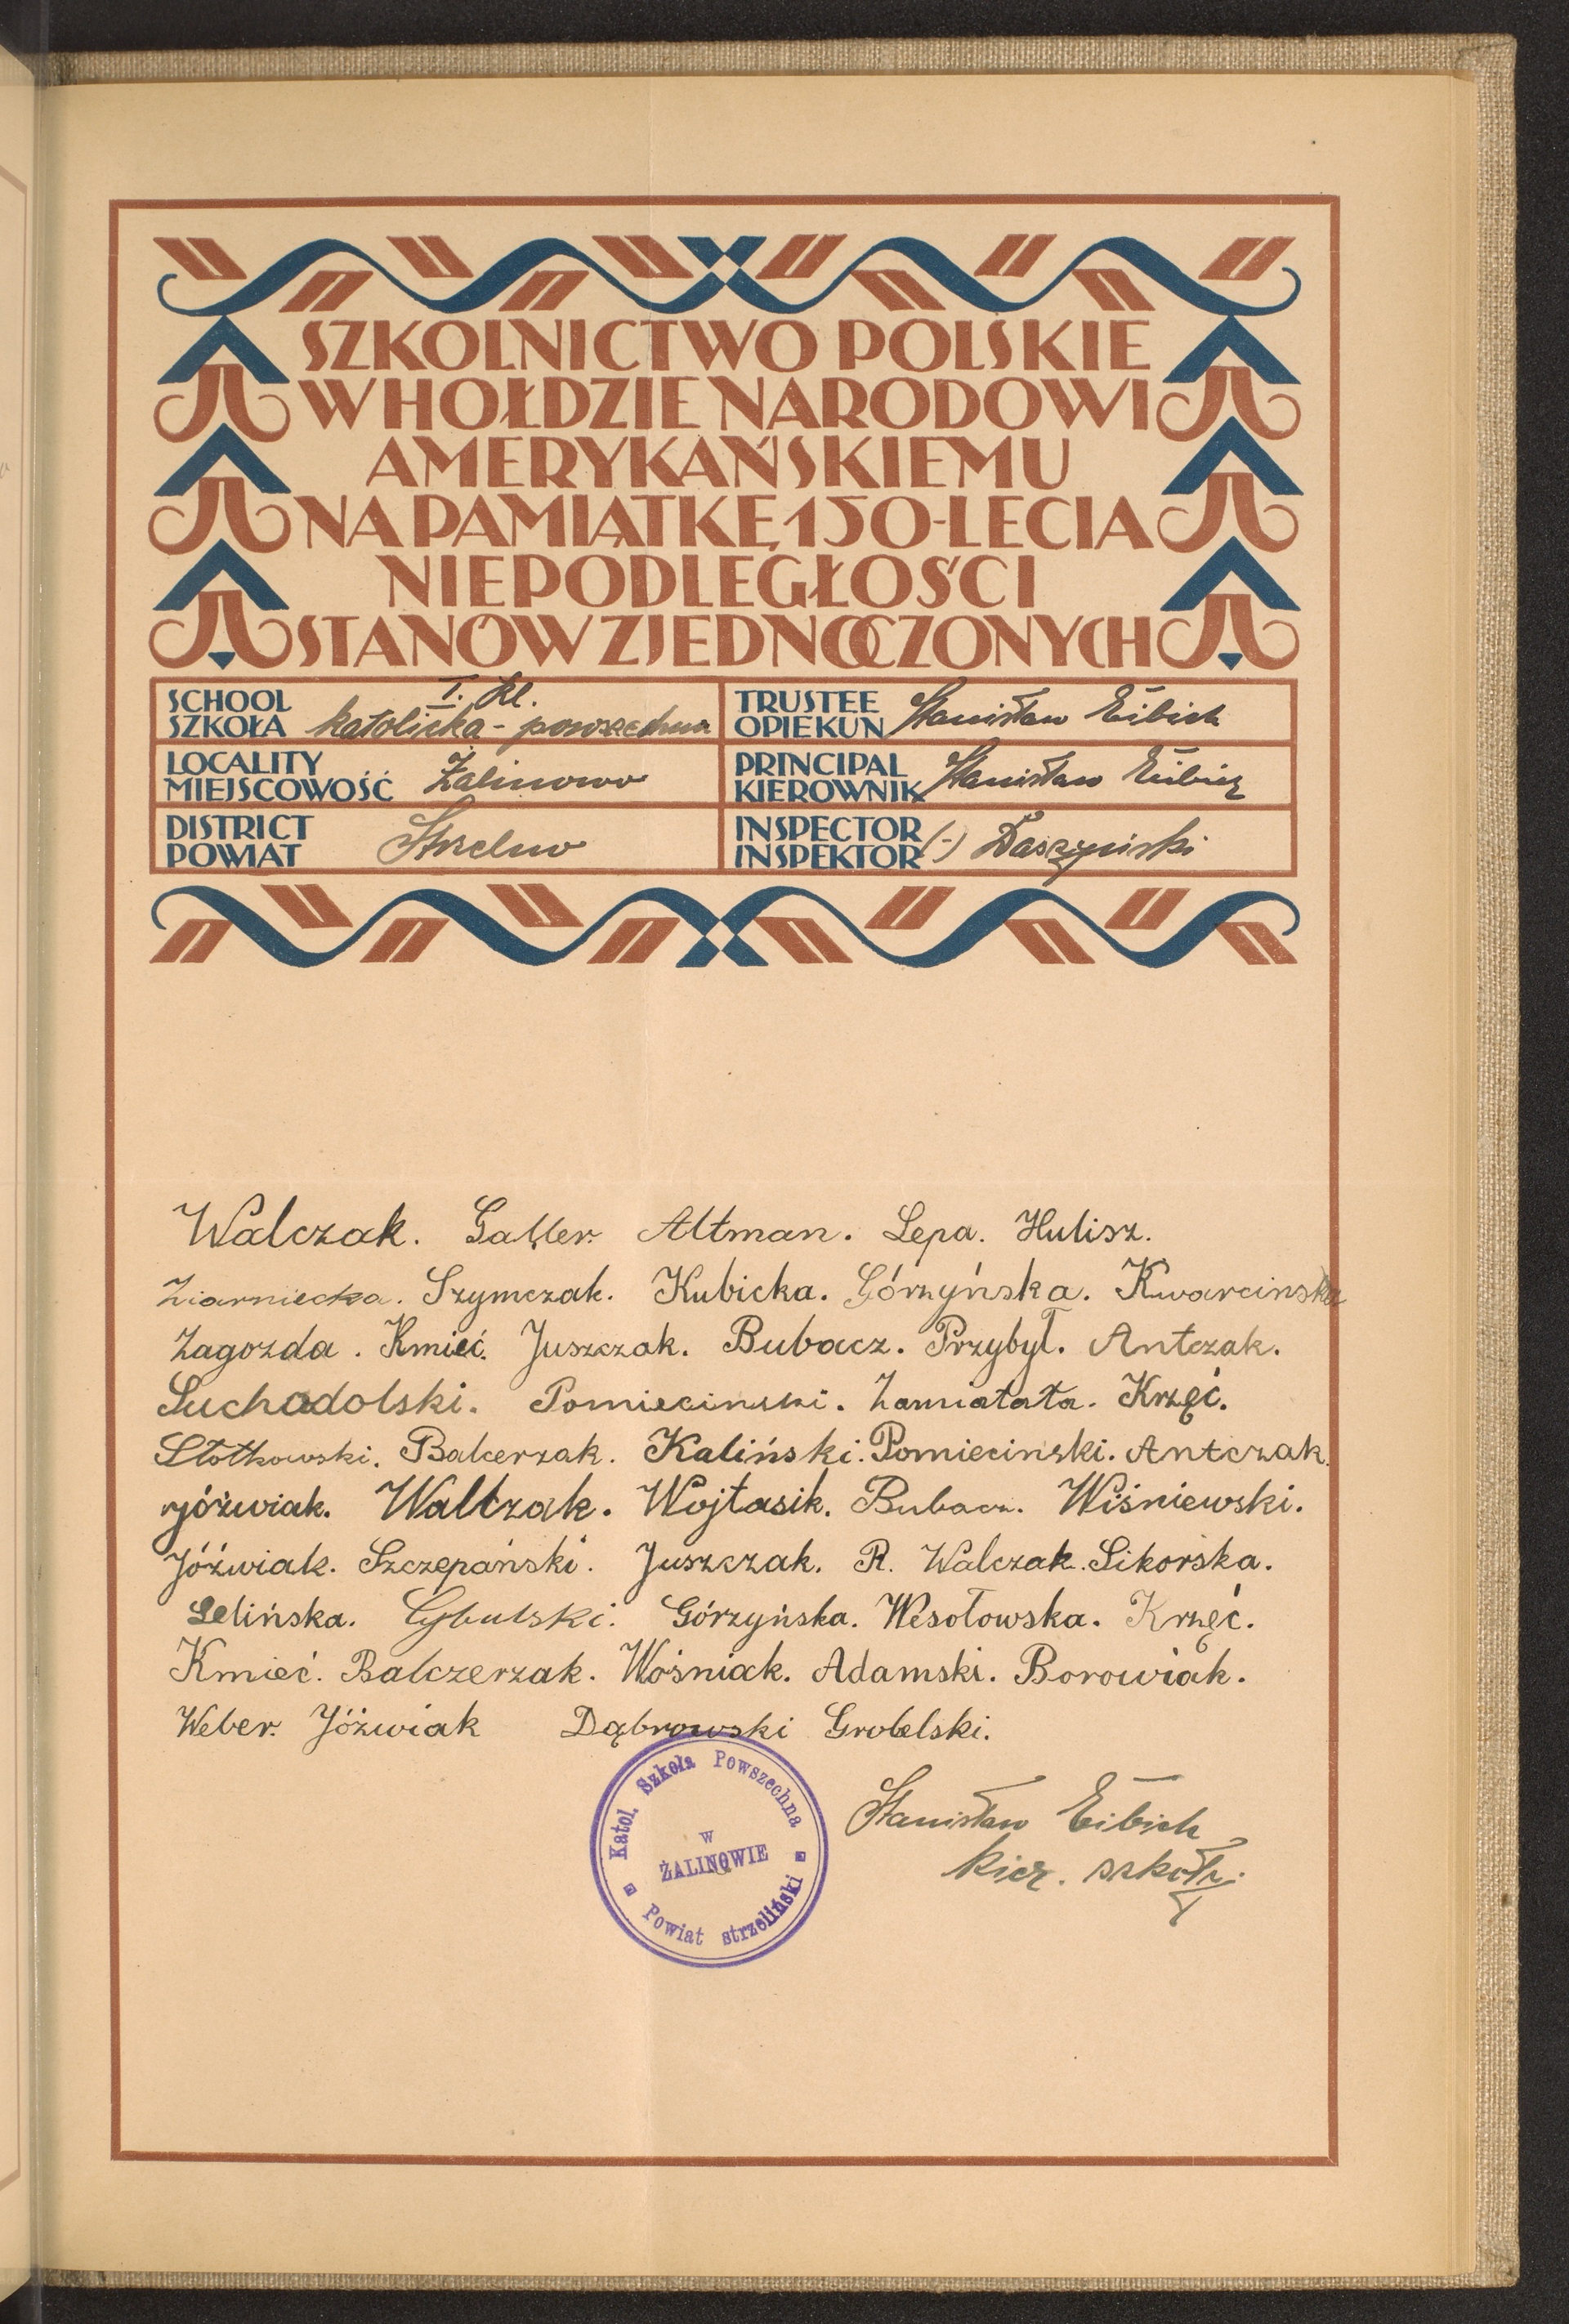 SZKOLNICTWO POLSKIE
W HOŁDZIE NARODOWI
AMERYKAŃSKIEMU
NA PAMIĄTKĘ 150-LECIA
NIEPODLEGŁOŚCI
STANÓW ZJEDNOCZONYCH
SCHOOL
SZKOŁA
I. kl.
katolicka - powszechna
TRUSTEE
OPIEKUN
Stanisław Eibich
LOCALITY
MIEJSCOWOŚĆ
Żalinowo
PRINCIPAL
KIEROWNIK
Stanisław Eibich
DISTRICT
POWIAT
Strzelno
INSPECTOR
INSPEKTOR
(-) Daszyński
Walczak. Altman. Lepa. Hulisz.
Ziarniecka. Szymczak. Kubicka. Górzyńska. Kwarcinska
Zagozda. Kmieć. Juszczak. Bubacz. Przybył. Antczak.
Suchodolski. Pomiecinski. Zamiatała. Krzęć.
Słotkowski. Balcerzak. Kaliński. Pomiecinski. Antczak.
Jóźwiak. Walczak. Wojtasik. Bubacz. Wiśniewski.
Jóźwiak. Szczepański. Juszczak. R. Walczak. Sikorska.
Lelińska. Cybulski. Górzyńska. Wesołowska. Krzęć.
Kmieć. Balczerzak. Wośniak. Adamski. Borowiak.
Weber. Jóżwiak Dąbrowski Grobelski.
Katol. Szkoła Powszechna
w
ŻALINOWIE
Powiat strzeliński
Stanisław Eibich
kier. szkoły.